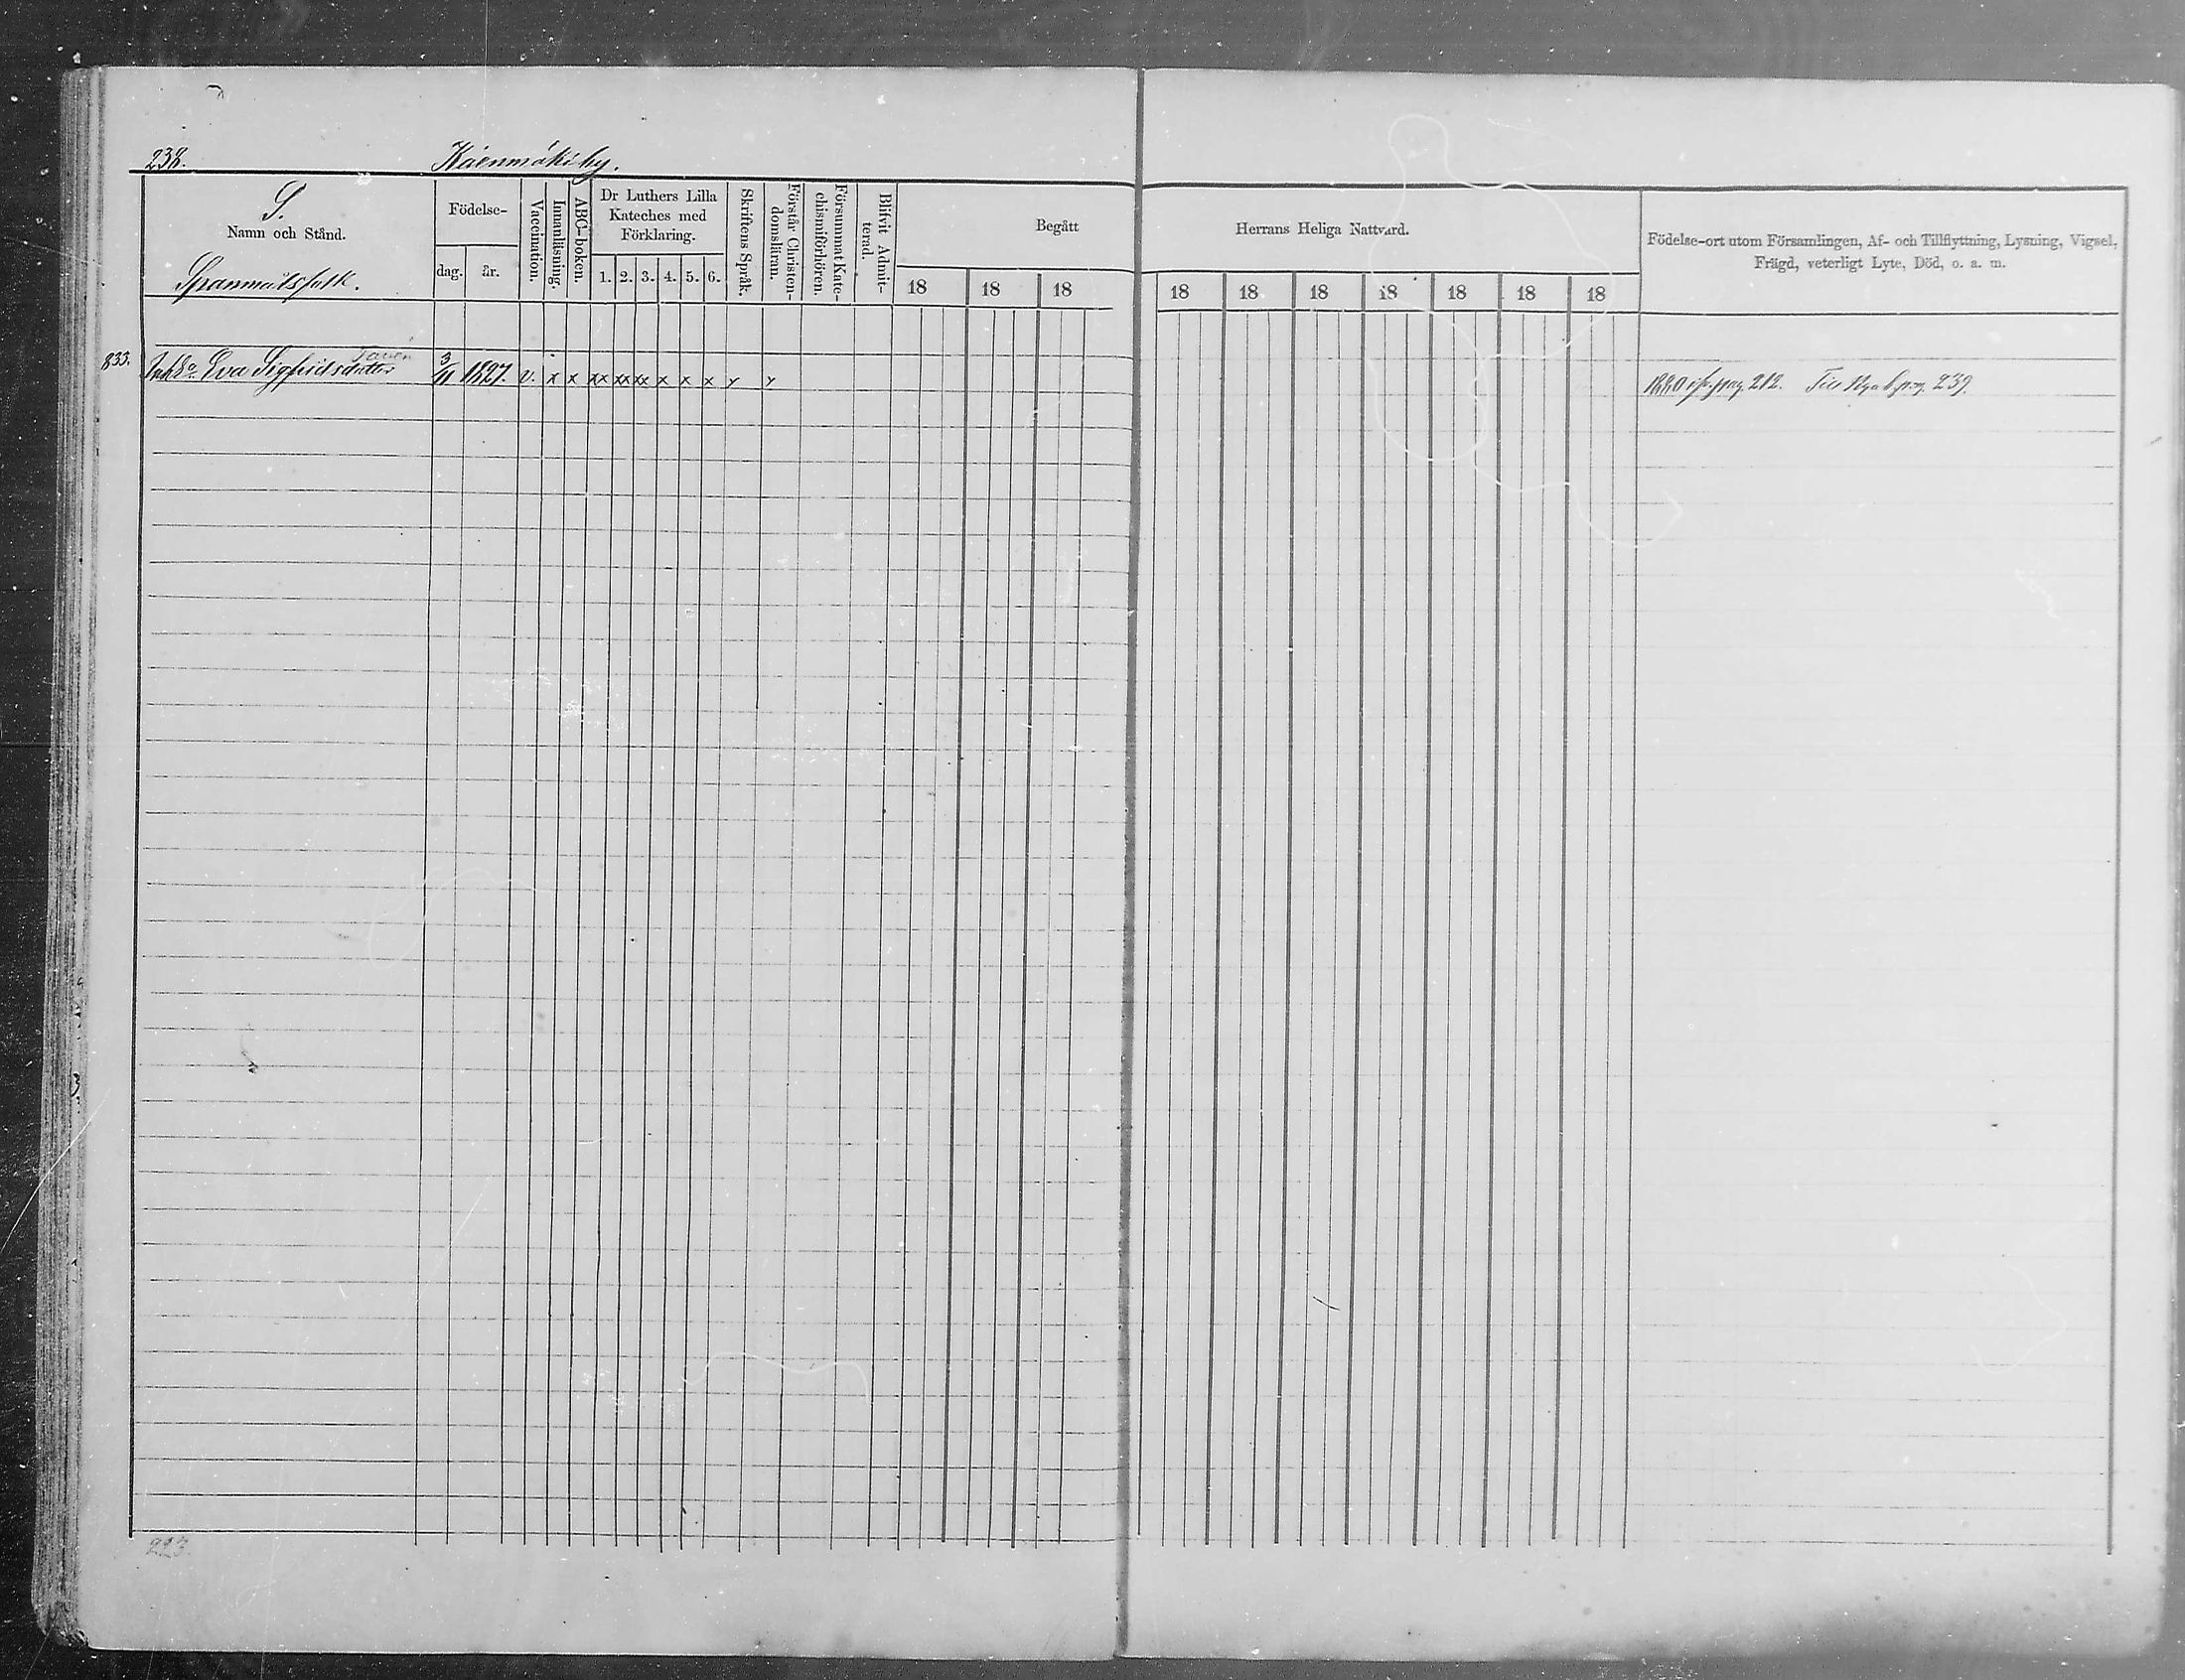 238. Käenmäki by.
S.
Namn och Stånd.
Spanmålsfolk.
Födelse-
dag. år.
Vaccination.
Innanläsning.
ABC-boken.
Dr Luthers Lilla
Kateches med
Förklaring.
1. 2. 3. 4. 5. 6.
Skriftens Språk.
Förstår Christen-
domsläran.
Försummat Kate-
chismiförhören.
Blifvit Admit-
terad.
Begått Herrans Heliga Nattvard.
18 18 18 18 18 18 18 18 18 18
Födelse-ort utom Församlingen, Af- och Tillflyttning, Lysning, Vigsel,
Frägd, veterligt Lyte, Död, o. a. m.
833. Eva Sigfridsdotter 3/11 1827. v. x x xx xx xx x x x x x 1880 ifr. pag. 212. Till Nya b. pag. 239.
223.